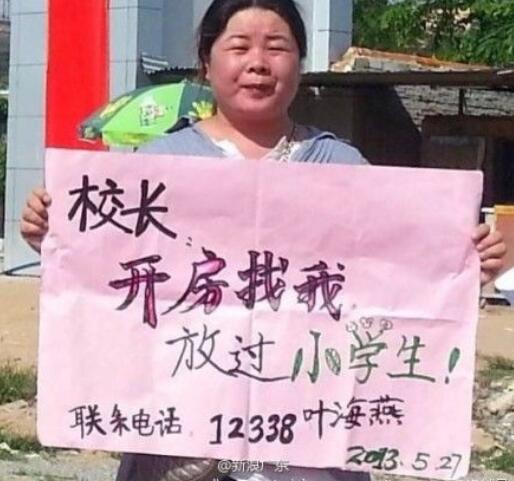 校长
开房找我
放过小学生!
联系电话 12338 叶海燕
2013.5.27
@新浪广东